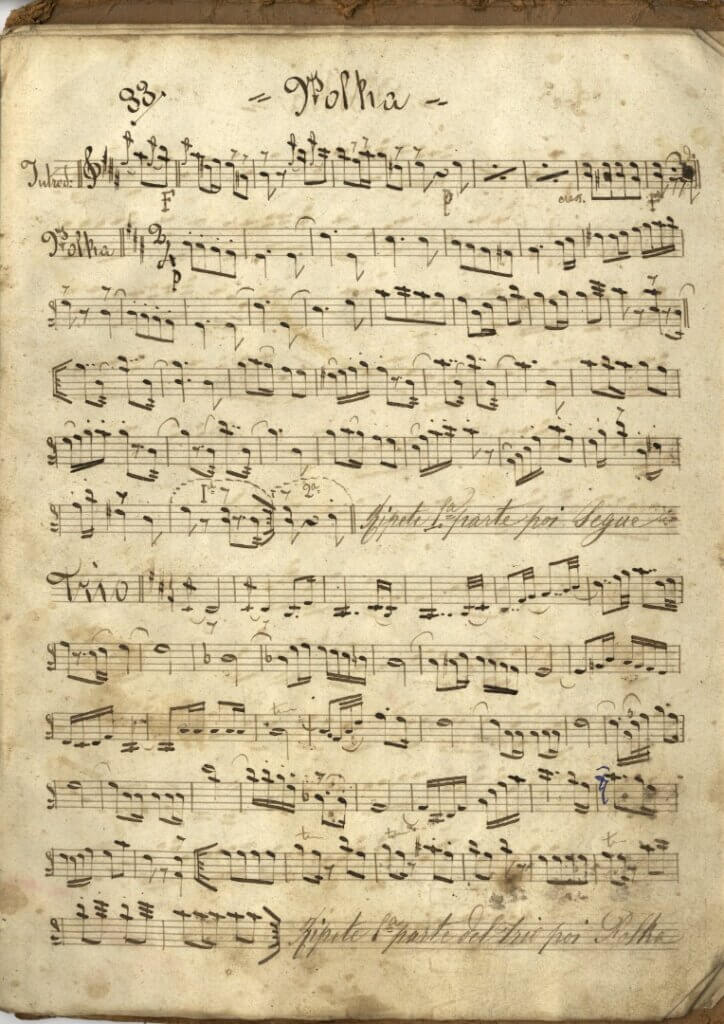 33. = Polka =
Introd:
F p cres. F
Polka 2/4
p
1ª 2ª Ripete 1ª parte poi Segue Trio
Trio
tr
tr tr
tr
3
Ripete 1ª parte del trio poi Polka